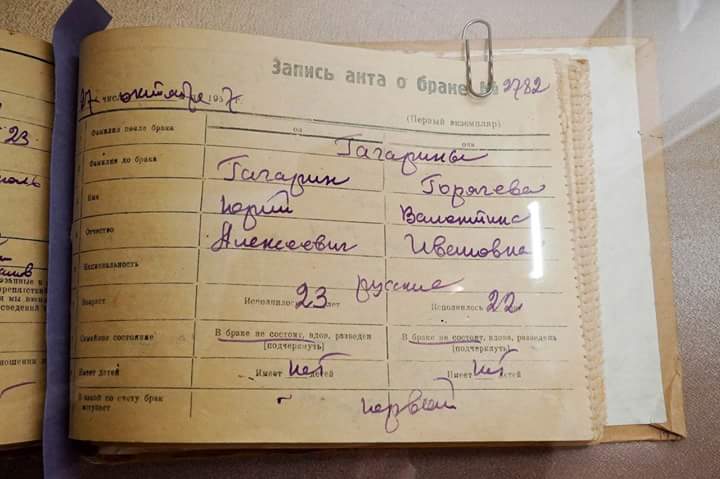 Запись акта о браке № 2782
27 числ октября 1957 г.
(Первый экземпляр)
он
она
Фамилия после брака
Гагарины
Фамилия до брака
Гагарин Горячева
Имя
Юрий Валентина
Отчество
Алексеевич Ивановна
Национальность
русские
Возраст
Исполнилось 23 лет Исполнилось 22
Семейное состояние
В браке не состоит, вдов, разведен В браке не состоит, вдова, разведена
(подчеркнуть) (подчеркнуть)
Имеет детей
Имеет нет детей Имеет нет детей
В какой по счету брак
вступает
первый
23